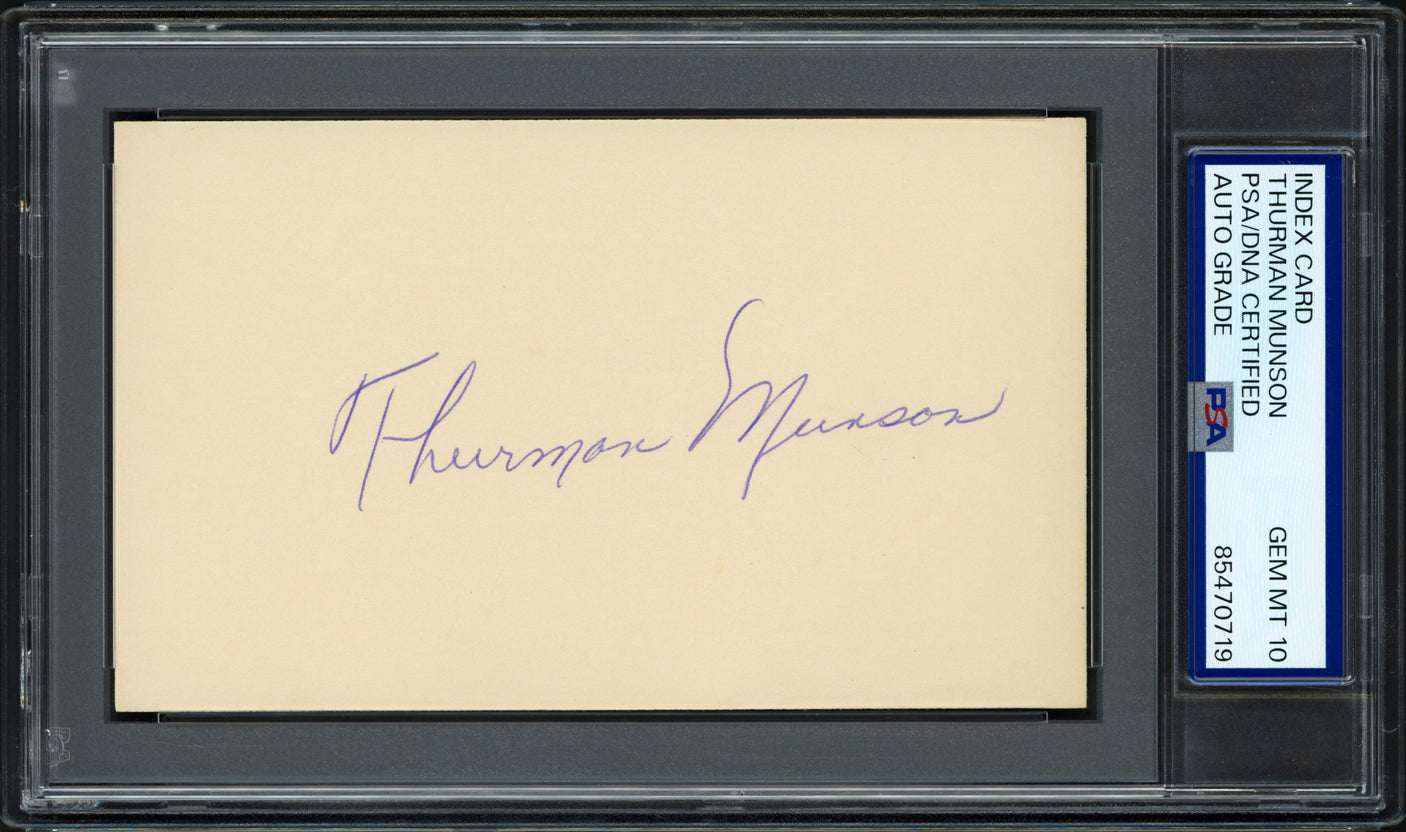 Thurman Munson
INDEX CARD
THURMAN MUNSON
PSA/DNA CERTIFIED
AUTO GRADE
PSA
GEM MT 10
85470719